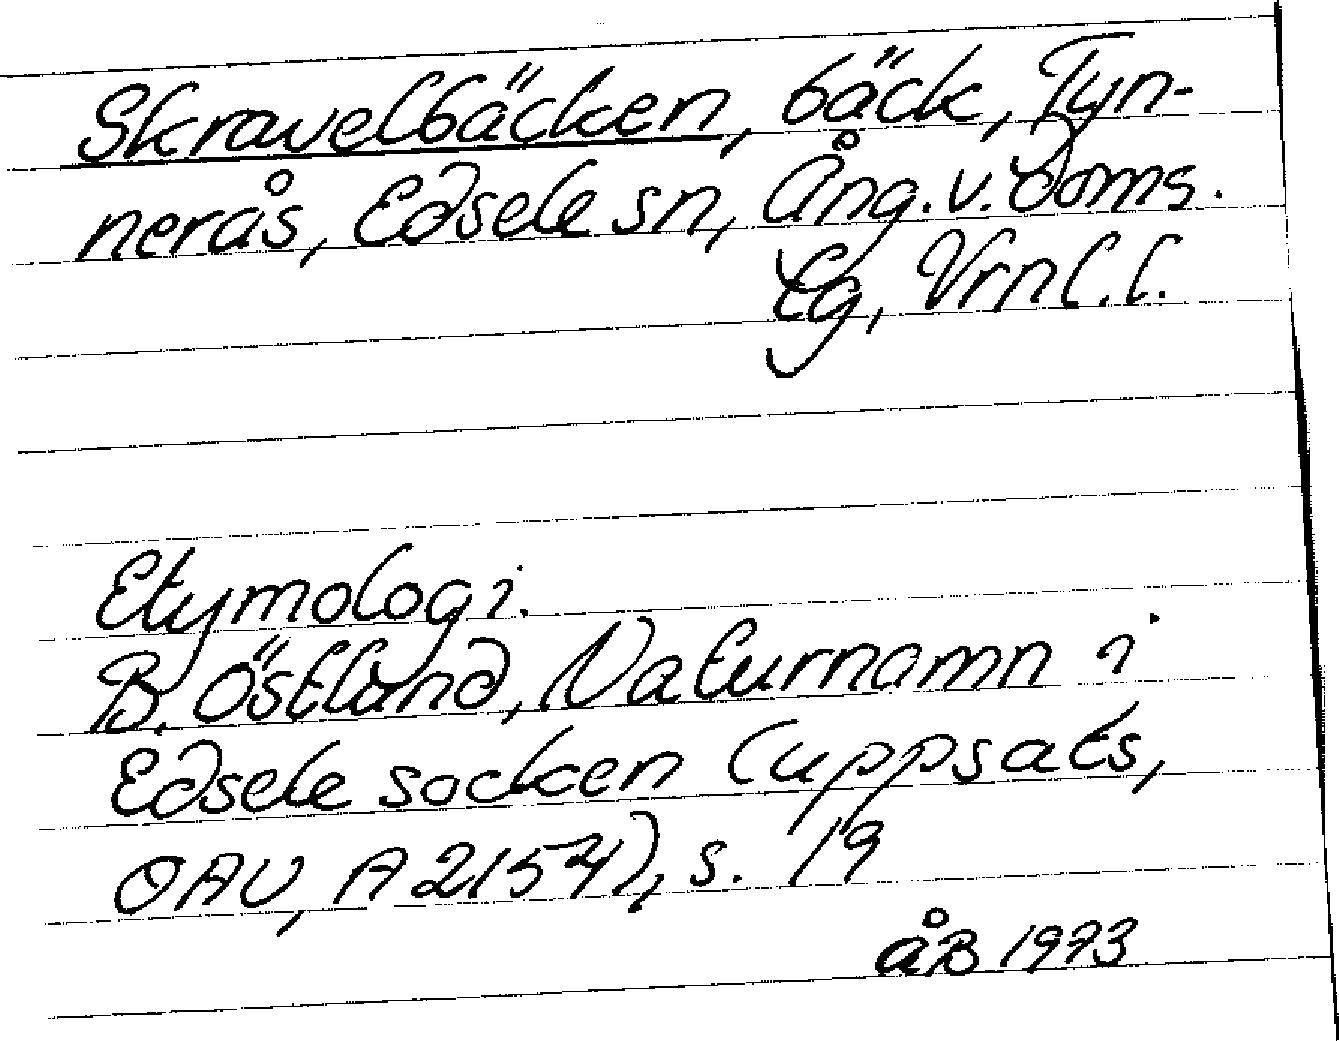 Skravelbäcken, bäck, Tyn-
nerås, Edsele sn, Ång. v. Doms.
lg, Vrnl. l.
Etymologi.
B. Östlund, Naturnamn i
Edsele socken (uppsats,
OAU, A 2154), s. 19
åB 1973